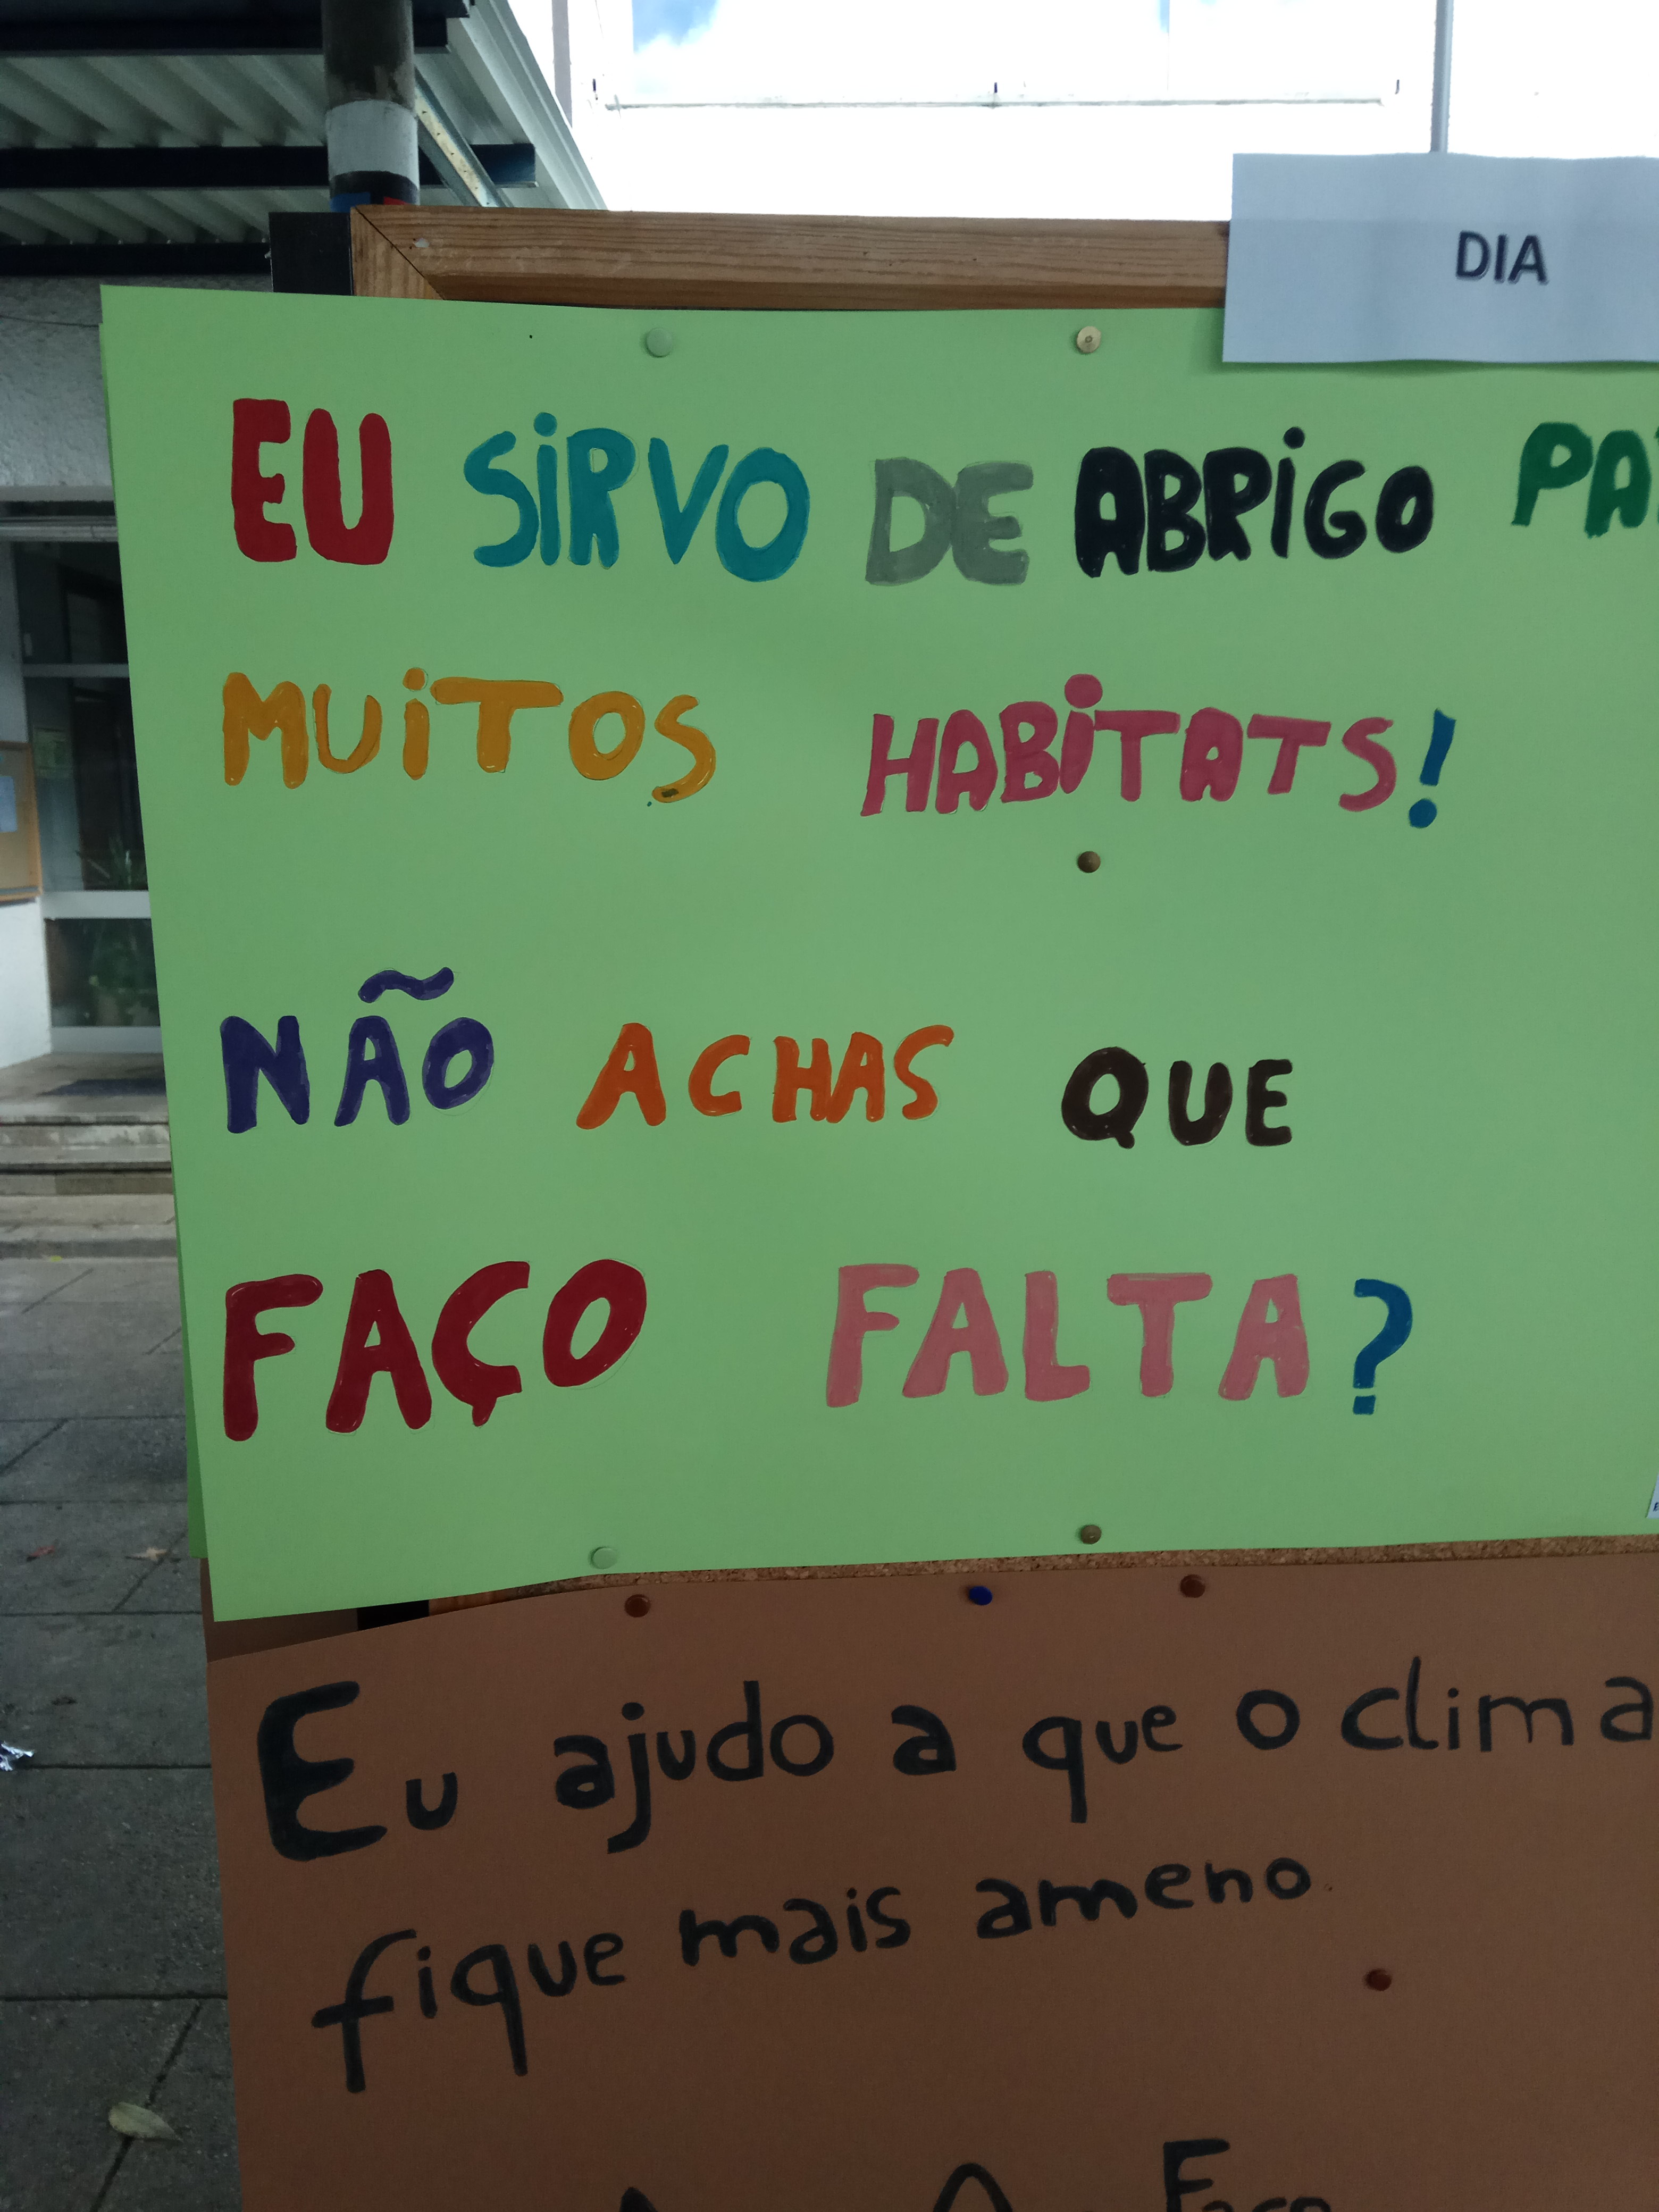 DIA
EU SIRVO DE ABRIGO
MUITOS HABITATS!
NÃO ACHAS QUE
FAÇO FALTA?
Eu ajudo a que o clima
fique mais ameno